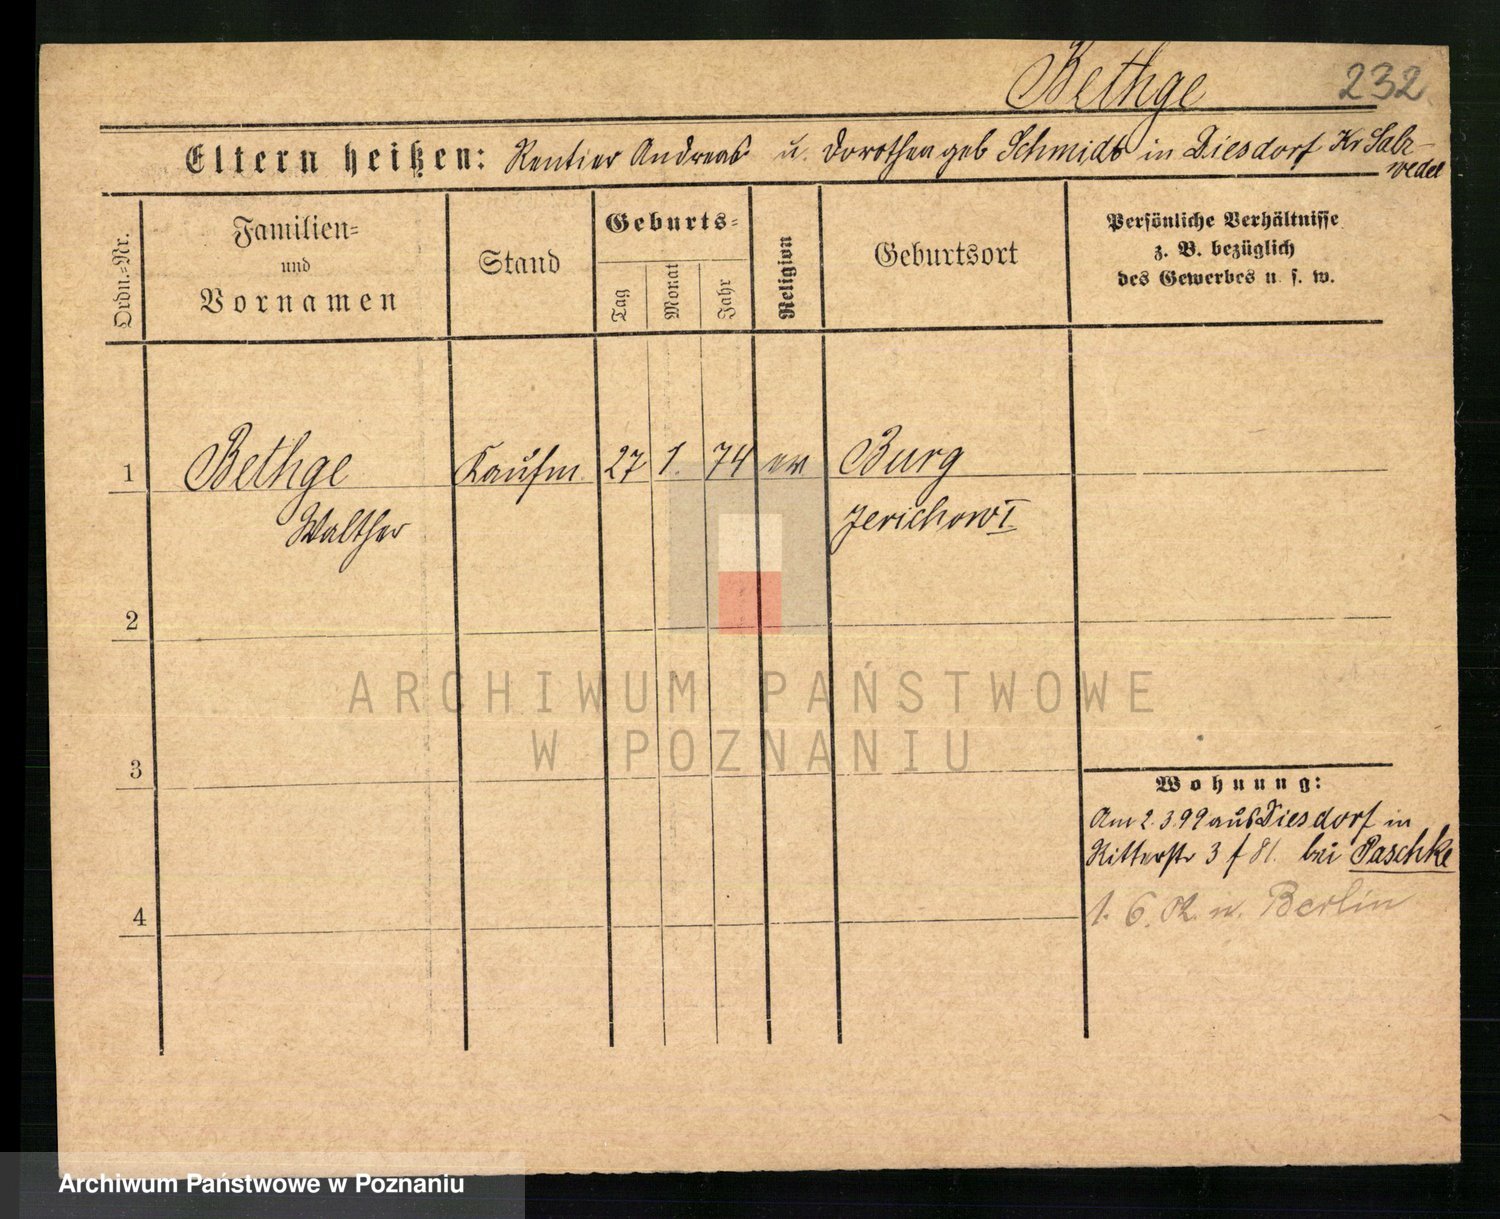 Bethge 232
Eltern heißen: Rentier Andreas u. Dorothea geb Schmidt in Diesdorf Kr Salz-
wedel
Ordn.-Nr.
Familien-
und
Vornamen
Stand
Geburts-
Tag
Monat
Jahr
Religion
Geburtsort
Persönliche Verhältnisse
z. B. bezüglich
des Gewerbes u. s. w.
1 Bethge Kaufm. 27 1. 74 ev Burg
Walther Jerichow I
2
ARCHIWUM PAŃSTWOWE
W POZNANIU
3
Wohnung:
Am 2.3.99 aus Diesdorf in
Ritterstr 3 bei Paschke
4
1. 6. n. Berlin
Archiwum Państwowe w Poznaniu